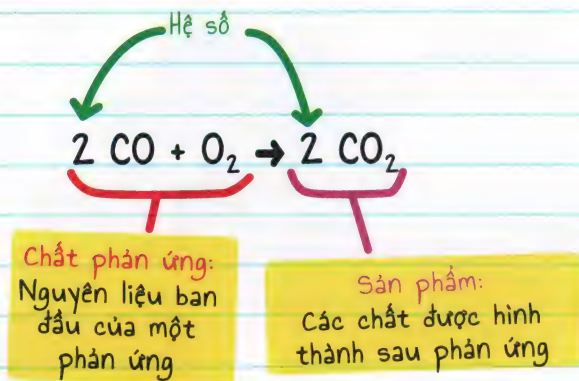 Hệ số
2 CO + O₂ → 2 CO₂
Chất phản ứng:
Nguyên liệu ban
đầu của một
phản ứng
Sản phẩm:
Các chất được hình
thành sau phản ứng